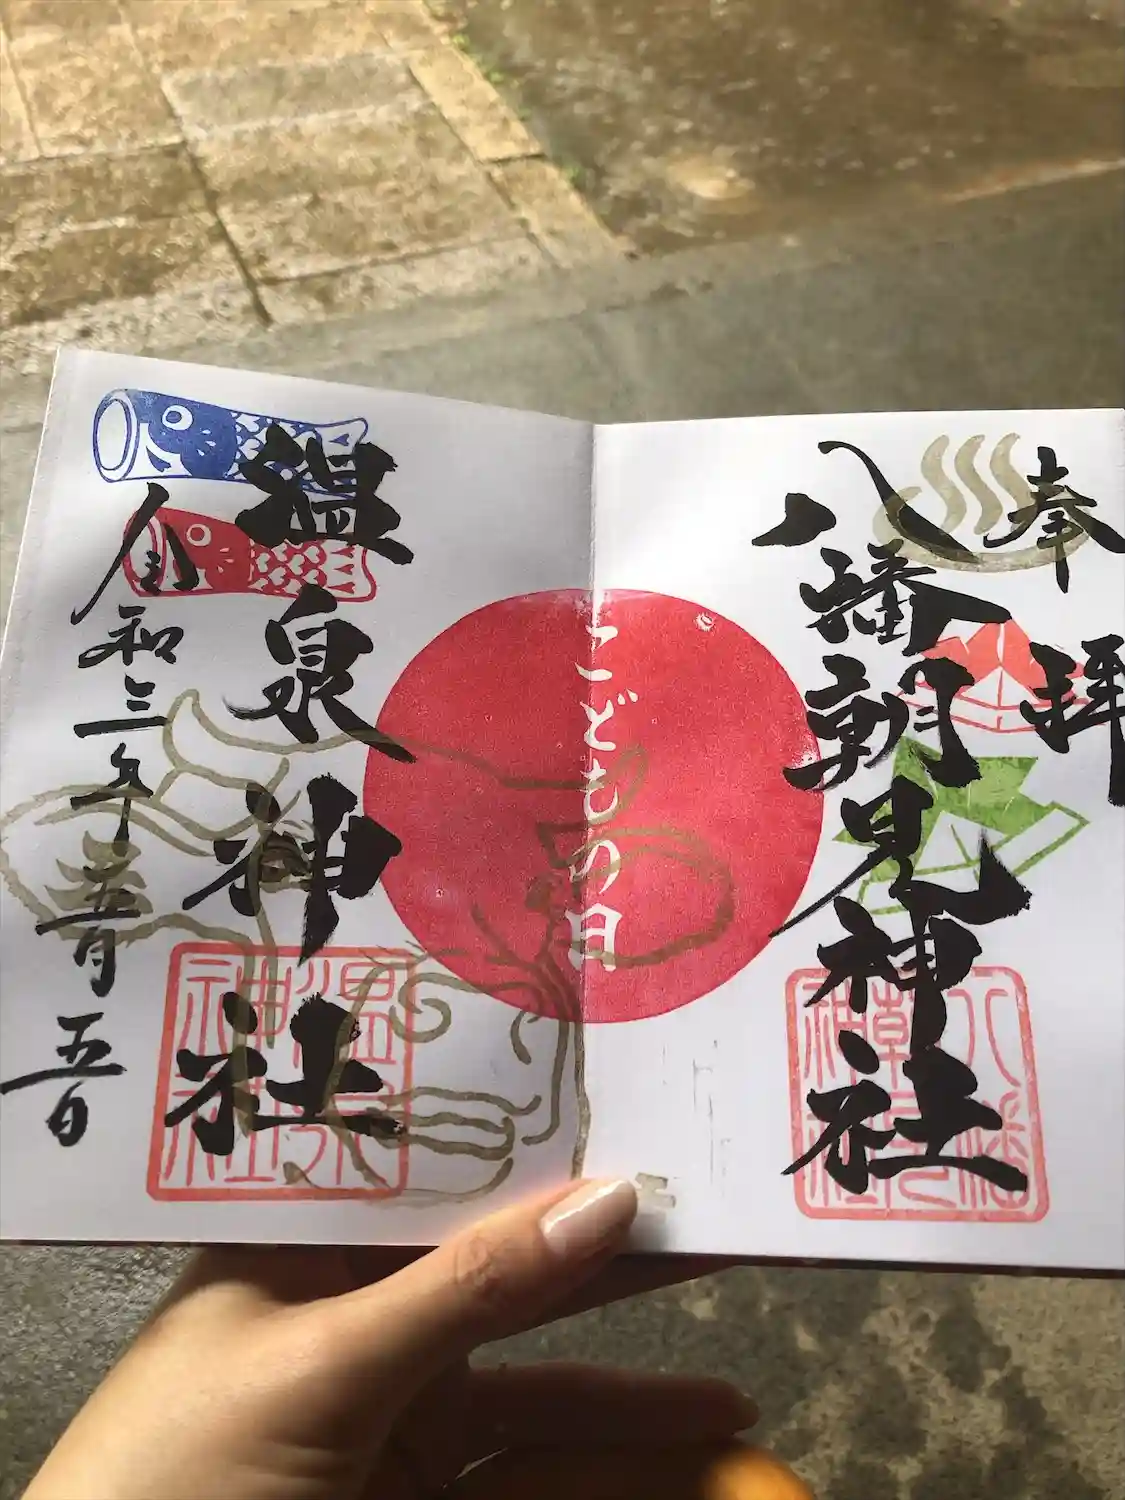 奉拝
八幡朝見神社
こどもの日
温泉神社
令和三年五月五日
八幡朝見神社
温泉神社